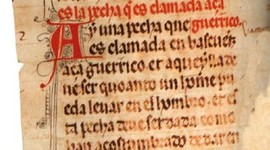 es la pecha q̃ es clamada aça
Ay una pecha que guerrico
es clamada en bascuenz
aça guerrico et aqueylla de
ue ser quoanto un home pu
eda leuar en el hombro et es
ta pecha deue ser dada como
han acostumbrado de dar en